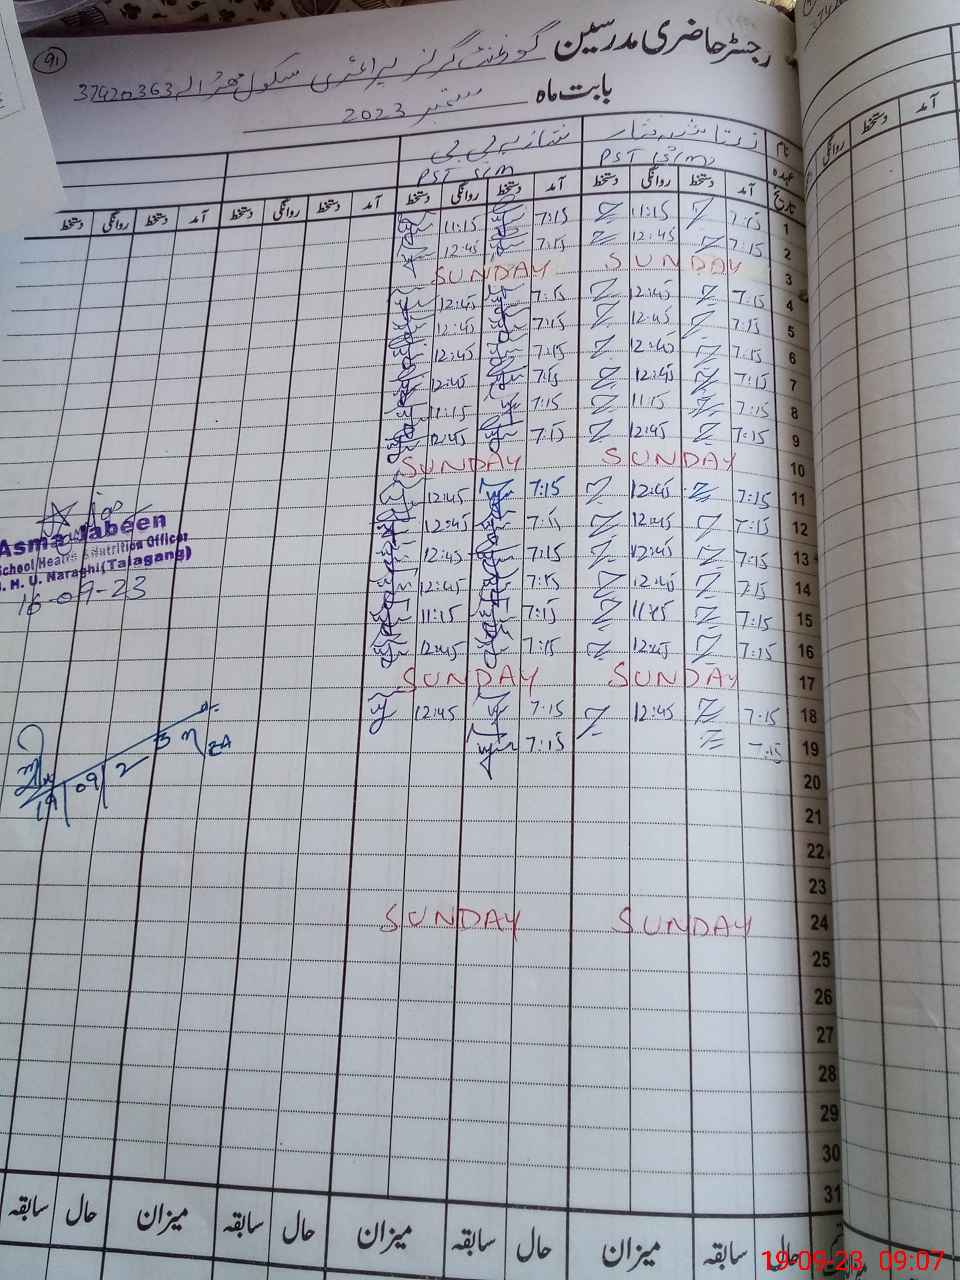 91
رجسٹر حاضری مدرسین گورنمنٹ گرلز پرائمری سکول 37420363
بابت ماہ ستمبر 2023
نام
عہدہ PST PST
تاریخ آمد دستخط روانگی دستخط آمد دستخط روانگی دستخط آمد دستخط روانگی دستخط آمد دستخط روانگی دستخط
1 7:15 11:15 7:15 11:15
2 7:15 12:45 7:15 12:45
3 SUNDAY SUNDAY
4 7:15 12:45 7:15 12:45
5 7:15 12:45 7:15 12:45
6 7:15 12:45 7:15 12:45
7 7:15 12:45 7:15 12:45
8 7:15 11:15 7:15 11:15
9 7:15 12:45 7:15 12:45
10 SUNDAY SUNDAY
11 7:15 12:45 7:15 12:45
12 7:15 12:45 7:15 12:45
13 7:15 12:45 7:15 12:45
14 7:15 12:45 7:15 12:45
15 7:15 11:15 7:15 11:15
16 7:15 12:45 7:15 12:45
17 SUNDAY SUNDAY
18 7:15 12:45 7:15 12:45
19 7:15 7:15
20
21
22
23
24 SUNDAY SUNDAY
25
26
27
28
29
30
31
Asma Jabeen
School Health & Nutrition Officer
H. U. Naraghi (Talagang)
16-09-23
19/09/23
حال سابقہ میزان حال سابقہ میزان حال سابقہ میزان حال سابقہ
آمد دستخط روانگی
19-09-23 09:07